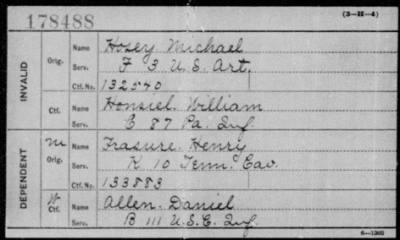 178488
(3-H-4)
INVALID
Orig.
Name Hosey Michael
Serv. F 3 U.S. Art.
Ctf. No. 132540
Ctf.
Name Honsiel. William
Serv. G 87 Pa. Inf.
DEPENDENT
M
Orig.
Name Frasure. Henry
Serv. K. 10 Tenn. Cav.
Ctf. No. 133883
W
Ctf.
Name Allen. Daniel
Serv. B 111 U.S.C. Inf.